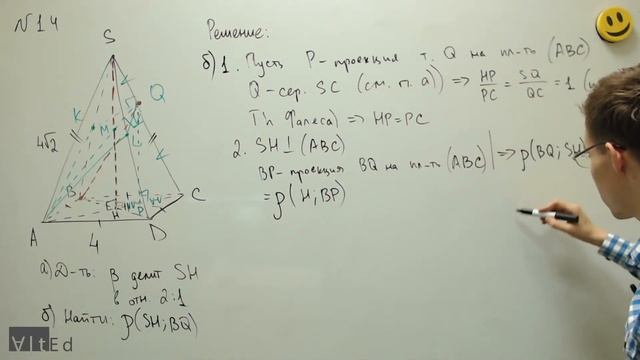 N 14
Решение:
S
Q
K
M
L
4√2
B
C
E
H
P
A
D
4
а) Д-ть: β делит SH
в отн. 2:1
б) Найти: ρ(SH; BQ)
б) 1. Пусть P- проекция т. Q на пл-ть (ABC)
Q - сер. SC (см. п. а)) => HP/PC = SQ/QC = 1 (
Th Фалеса) => HP = PC
2. SH ⊥ (ABC)
BP- проекция BQ на пл-ть (ABC) | => ρ(BQ; SH
= ρ(H; BP)
AltEd